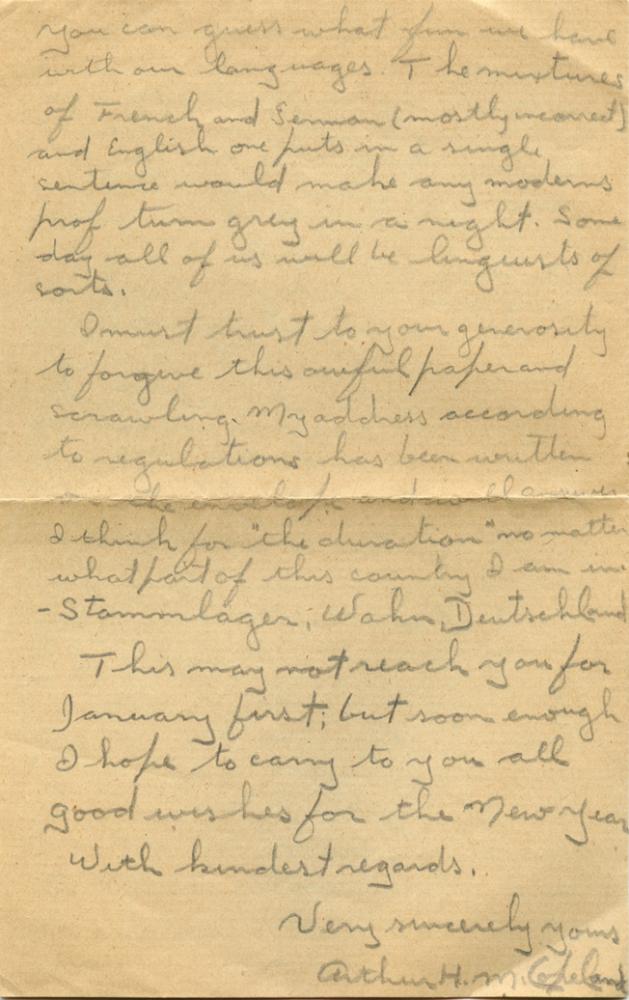 you can guess what fun we have
with our languages. The mixtures
of French and German (mostly incorrect)
and English one puts in a single
sentence would make any moderns
prof turn grey in a night. Some
day all of us will be linguists of
sorts.
I must trust to your generosity
to forgive this awful paper and
scrawling. My address according
to regulations has been written
on the envelope and will answer
I think for "the duration" no matter
what part of this country I am in
- Stammlager, Wahn, Deutschland
This may not reach you for
January first; but soon enough
I hope to carry to you all
good wishes for the New Year
With kindest regards.
Very sincerely yours
Arthur H. M. Copeland